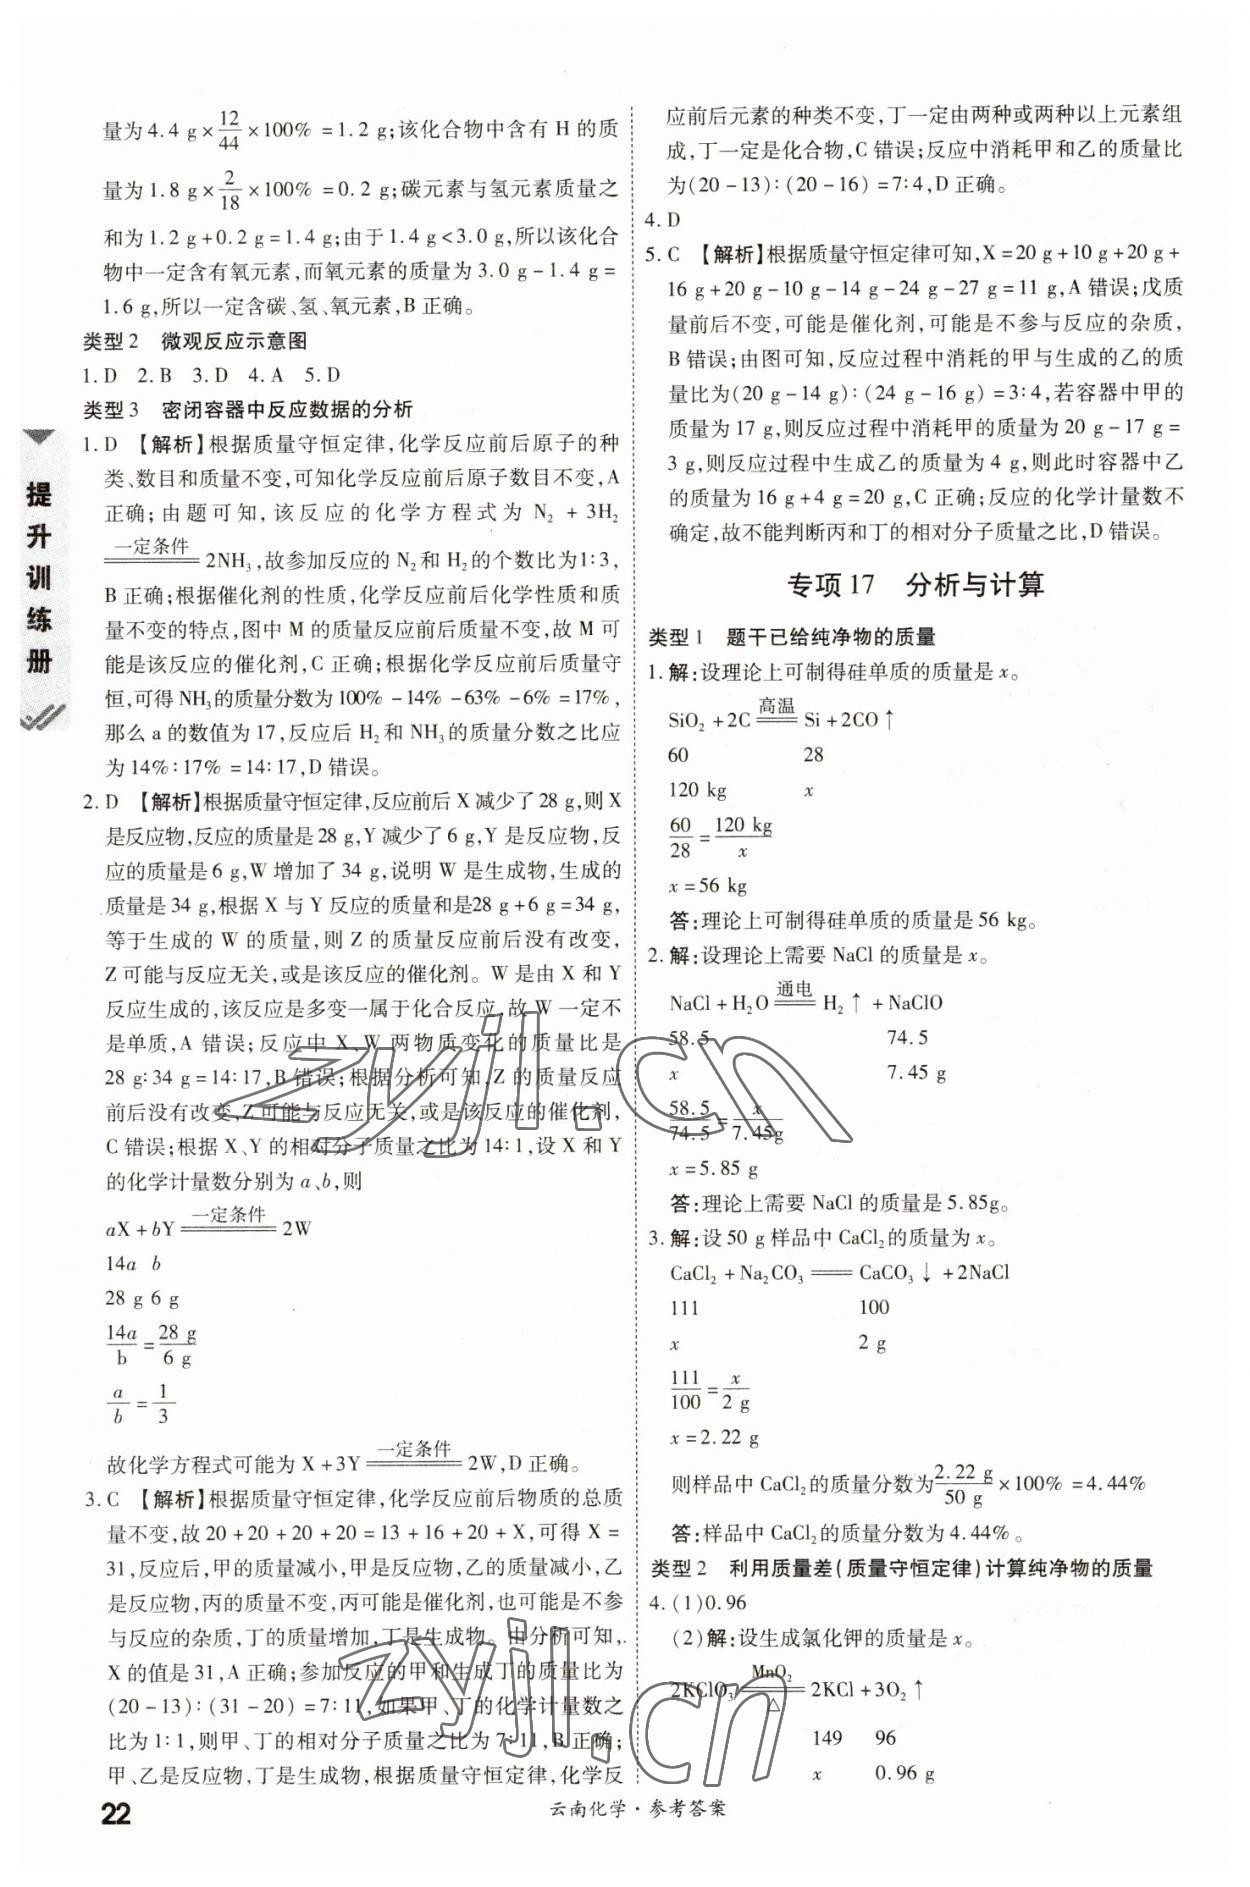 量为4.4 g×12/44×100% =1.2 g;该化合物中含有 H 的质
量为1.8 g×2/18×100% =0.2 g;碳元素与氢元素质量之
和为1.2 g+0.2 g=1.4 g;由于1.4 g<3.0 g,所以该化合
物中一定含有氧元素,而氧元素的质量为3.0 g-1.4 g=
1.6 g,所以一定含碳、氢、氧元素,B 正确。
类型2 微观反应示意图
1. D 2. B 3. D 4. A 5. D
类型3 密闭容器中反应数据的分析
1. D 【解析】根据质量守恒定律,化学反应前后原子的种
类、数目和质量不变,可知化学反应前后原子数目不变,A
正确;由题可知,该反应的化学方程式为 N₂ + 3H₂
一定条件
═══2NH₃,故参加反应的 N₂和 H₂的个数比为1∶3,
B 正确;根据催化剂的性质,化学反应前后化学性质和质
量不变的特点,图中 M 的质量反应前后质量不变,故 M 可
能是该反应的催化剂,C 正确;根据化学反应前后质量守
恒,可得 NH₃的质量分数为 100% -14% -63% -6% =17%,
那么 a 的数值为17,反应后 H₂和 NH₃的质量分数之比应
为14%∶17% =14∶17,D 错误。
2. D 【解析】根据质量守恒定律,反应前后 X 减少了28 g,则 X
是反应物,反应的质量是28 g,Y 减少了6 g,Y 是反应物,反
应的质量是6 g,W 增加了34 g,说明 W 是生成物,生成的
质量是34 g,根据 X 与 Y 反应的质量和是28 g+6 g=34 g,
等于生成的 W 的质量,则 Z 的质量反应前后没有改变,
Z 可能与反应无关,或是该反应的催化剂。W 是由 X 和 Y
反应生成的,该反应是多变一属于化合反应,故 W 一定不
是单质,A 错误;反应中 X、W 两物质变化的质量比是
28 g∶34 g=14∶17,B 错误;根据分析可知,Z 的质量反应
前后没有改变,Z 可能与反应无关,或是该反应的催化剂,
C 错误;根据 X、Y 的相对分子质量之比为14∶1,设 X 和 Y
的化学计量数分别为 a、b,则
aX+bY═一定条件═2W
14a b
28 g 6 g
14a/b=28 g/6 g
a/b=1/3
故化学方程式可能为 X+3Y═一定条件═2W,D 正确。
3. C 【解析】根据质量守恒定律,化学反应前后物质的总质
量不变,故 20+20+20+20=13+16+20+X,可得 X=
31,反应后,甲的质量减小,甲是反应物,乙的质量减小,乙
是反应物,丙的质量不变,丙可能是催化剂,也可能是不参
与反应的杂质,丁的质量增加,丁是生成物。由分析可知,
X 的值是31,A 正确;参加反应的甲和生成丁的质量比为
(20-13)∶(31-20)=7∶11,如果甲、丁的化学计量数之
比为1∶1,则甲、丁的相对分子质量之比为7∶11,B 正确;
甲、乙是反应物,丁是生成物,根据质量守恒定律,化学反
应前后元素的种类不变,丁一定由两种或两种以上元素组
成,丁一定是化合物,C 错误;反应中消耗甲和乙的质量比
为(20-13)∶(20-16)=7∶4,D 正确。
4. D
5. C 【解析】根据质量守恒定律可知,X=20 g+10 g+20 g+
16 g+20 g-10 g-14 g-24 g-27 g=11 g,A 错误;戊质
量前后不变,可能是催化剂,可能是不参与反应的杂质,
B 错误;由图可知,反应过程中消耗的甲与生成的乙的质
量比为(20 g-14 g)∶(24 g-16 g)=3∶4,若容器中甲的
质量为17 g,则反应过程中消耗甲的质量为20 g-17 g=
3 g,则反应过程中生成乙的质量为4 g,则此时容器中乙
的质量为16 g+4 g=20 g,C 正确;反应的化学计量数不
确定,故不能判断丙和丁的相对分子质量之比,D 错误。
专项17 分析与计算
类型1 题干已给纯净物的质量
1. 解:设理论上可制得硅单质的质量是 x。
SiO₂+2C═高温═Si+2CO↑
60 28
120 kg x
60/28=120 kg/x
x=56 kg
答:理论上可制得硅单质的质量是56 kg。
2. 解:设理论上需要 NaCl 的质量是 x。
NaCl+H₂O═通电═H₂↑+NaClO
58.5 74.5
x 7.45 g
58.5/74.5=x/7.45g
x=5.85 g
答:理论上需要 NaCl 的质量是5.85g。
3. 解:设50 g样品中 CaCl₂的质量为 x。
CaCl₂+Na₂CO₃═══CaCO₃↓+2NaCl
111 100
x 2 g
111/100=x/2 g
x=2.22 g
则样品中 CaCl₂的质量分数为2.22 g/50 g×100% =4.44%
答:样品中 CaCl₂的质量分数为4.44%。
类型2 利用质量差(质量守恒定律)计算纯净物的质量
4. (1)0.96
(2)解:设生成氯化钾的质量是 x。
2KClO₃═MnO₂/△═2KCl+3O₂↑
149 96
x 0.96 g
提升训练册
22
云南化学·参考答案
zyjl.cn
zyjl.cn